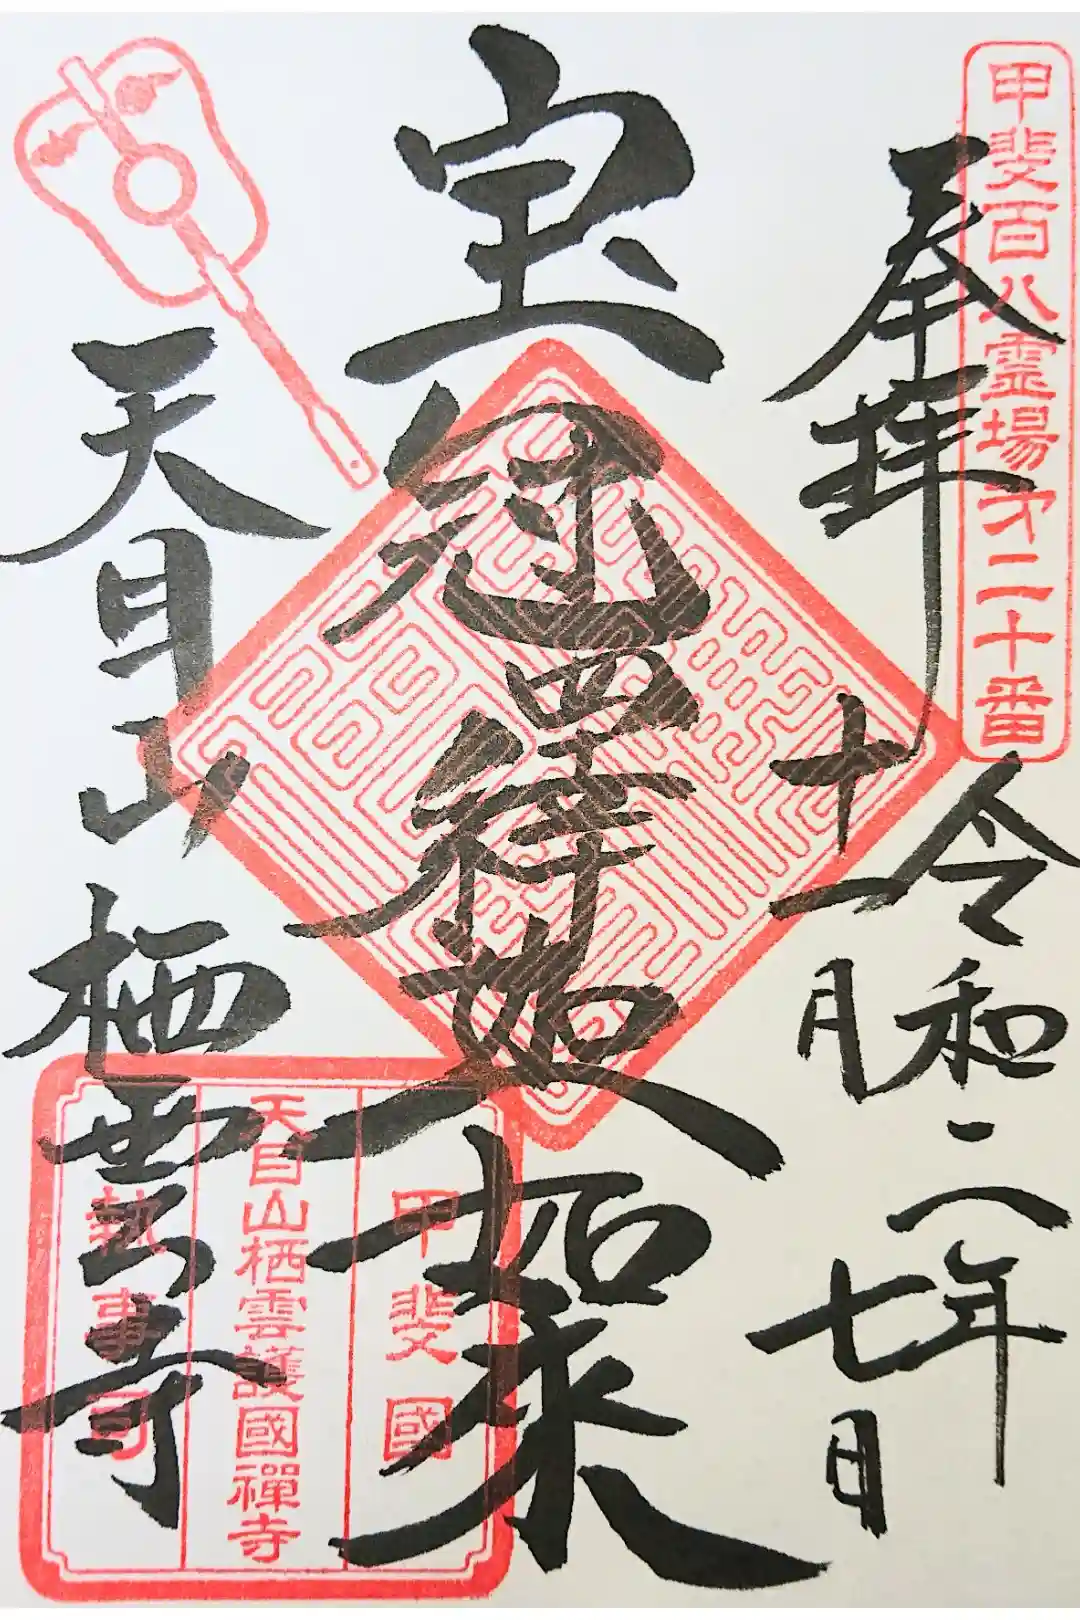 甲斐百八霊場㐧二十番
奉拝
令和二年
十一月七日
宝冠釋迦如来
天目山栖雲寺
甲斐國
天目山栖雲護國禪寺
執事司